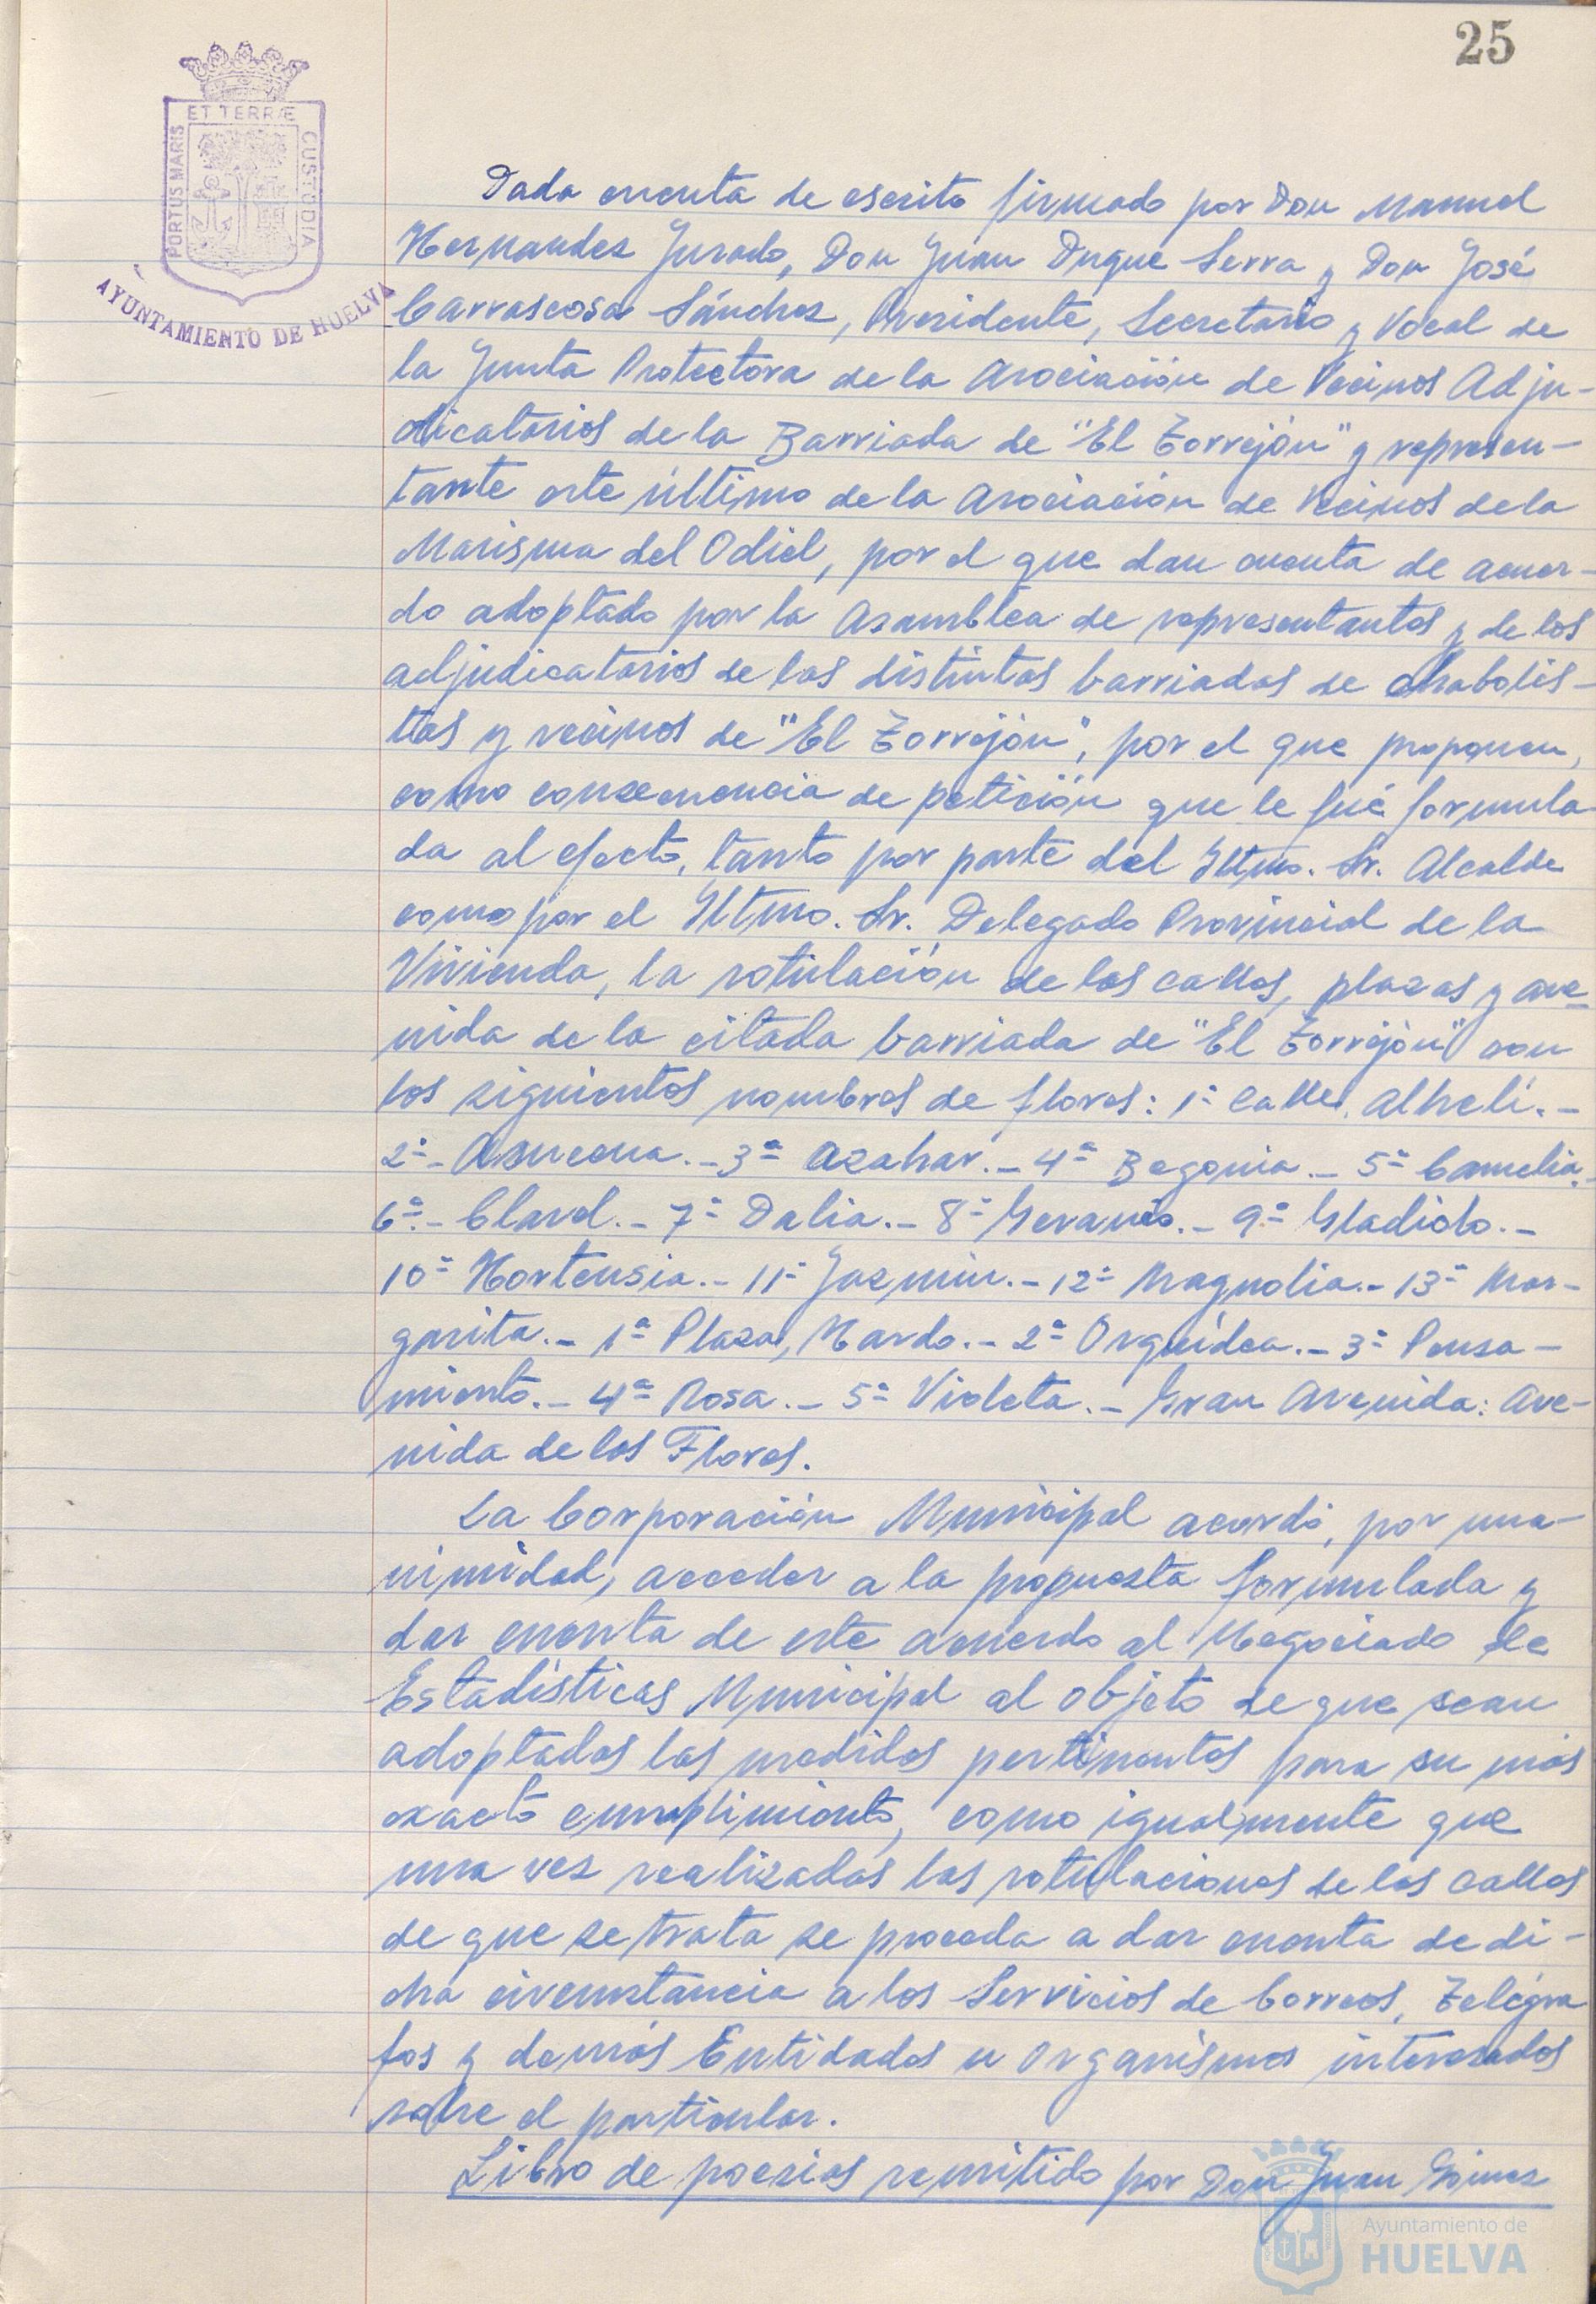 25
ET TERRÆ
PORTUS MARIS
CUSTODIA
AYUNTAMIENTO DE HUELVA
Dada cuenta de escrito firmado por Don Manuel
Hernandez Jurado, Don Juan Duque Serra y Don José
Carrascosa Sánchez, Presidente, Secretario y Vocal de
la Junta Protectora de la Asociación de Vecinos Adju-
dicatarios de la Barriada de "El Torrejón" y represen-
tante este último de la Asociación de Vecinos de la
Marisma del Odiel, por el que dan cuenta de acuer-
do adoptado por la Asamblea de representantes y de los
adjudicatarios de las distintas barriadas de chabolis-
tas y vecinos de "El Torrejón", por el que proponen,
como consecuencia de petición que le fué formula
da al efecto, tanto por parte del Iltmo. Sr. Alcalde
como por el Iltmo. Sr. Delegado Provincial de la
Vivienda, la rotulación de las calles, plazas y ave
nida de la citada barriada de "El Torrejón" con
los siguientes nombres de flores: 1ª Calle, Alhelí.-
2ª- Azucena.- 3ª Azahar.- 4ª Begonia.- 5ª Camelia.-
6ª.- Clavel.- 7ª Dalia.- 8ª Geranio.- 9ª Gladiolo.-
10ª Hortensia.- 11ª Jazmín.- 12ª Magnolia.- 13ª Mar-
garita.- 1ª Plaza, Nardo.- 2ª Orquídea.- 3ª Pensa-
miento.- 4ª Rosa.- 5ª Violeta.- Gran Avenida: Ave-
nida de las Flores.
La Corporación Municipal acordó, por una-
nimidad, acceder a la propuesta formulada y
dar cuenta de este acuerdo al Negociado de
Estadísticas Municipal al objeto de que sean
adoptadas las medidas pertinentes para su más
exacto cumplimiento, como igualmente que
una vez realizadas las rotulaciones de las calles
de que se trata se proceda a dar cuenta de di-
cha circunstancia a los Servicios de Correos, Telégra
fos y demás Entidades u Organismos interesados
sobre el particular.
Libro de poesias remitido por Don Juan Gómez
Ayuntamiento de
HUELVA